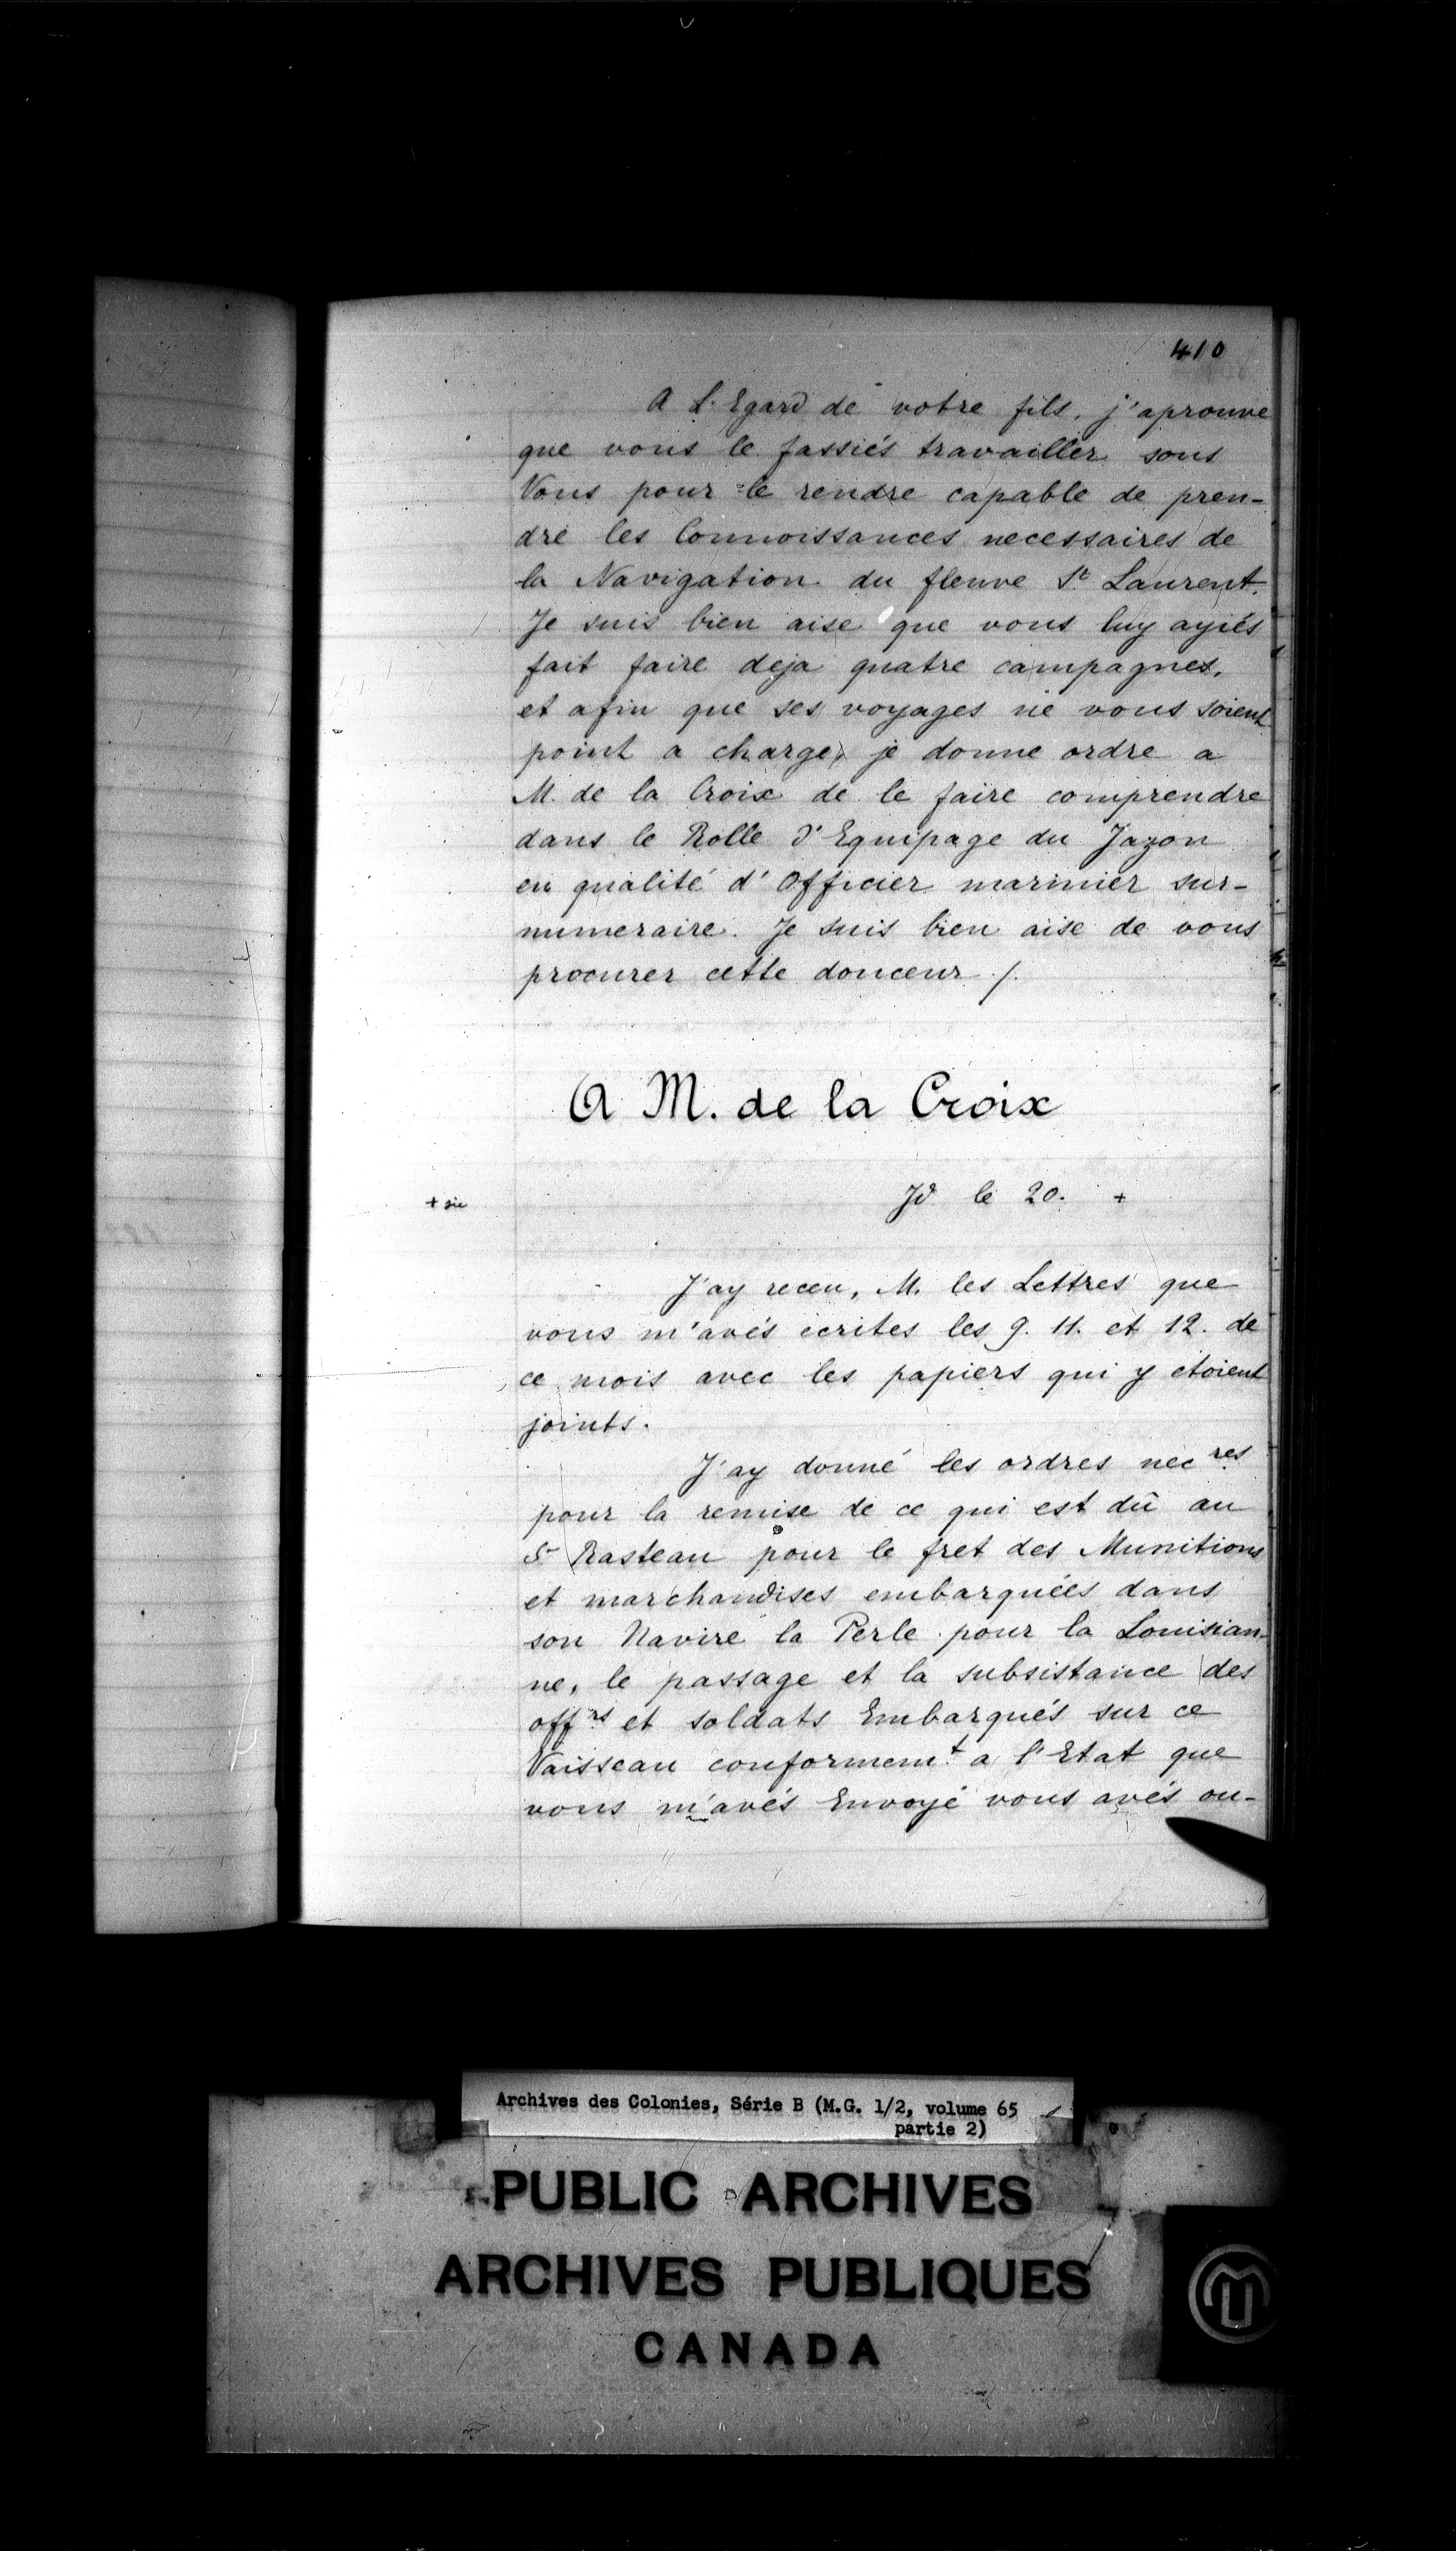 410
A L'Egard de votre fils, j'aprouve
que vous le fassiés travailler sous
Vous pour le rendre capable de pren-
dre les Connoissances necessaires de
la Navigation du fleuve St Laurent.
Je suis bien aise que vous luy ayiés
fait faire deja quatre campagnes,
et afin que ses voyages ne vous soient
point a charge, je donne ordre a
M. de la Croix de le faire comprendre
dans le Rolle d'Equipage du Jazon
en qualité d'Officier marinier sur-
numeraire. Je suis bien aise de vous
procurer cette douceur /.
A M. de la Croix
+ sic
Jd le 20. +
J'ay receu, M. les Lettres que
vous m'avés ecrites les 9. 11. et 12. de
ce mois avec les papiers qui y etoient
joints.
J'ay donné les ordres necres
pour la remise de ce qui est dû au
Sr Rasteau pour le fret des Munitions
et marchandises embarquées dans
son Navire la Perle pour la Louisian-
ne, le passage et la subsistance des
offrs et soldats Embarqués sur ce
Vaisseau conformemt a l'Etat que
vous m'avés Envoyé vous avés ou-
Archives des Colonies, Série B (M.G. 1/2, volume 65
partie 2)
PUBLIC ARCHIVES
ARCHIVES PUBLIQUES
CANADA